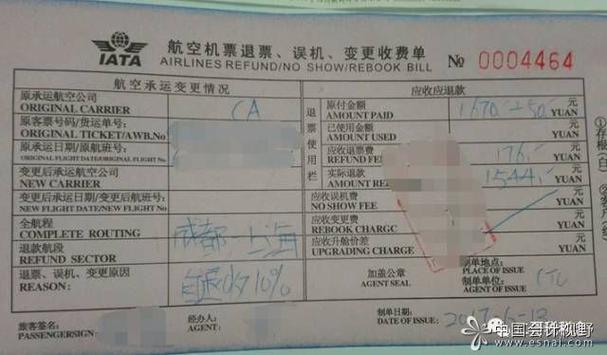 IATA
航空机票退票、误机、变更收费单
AIRLINES REFUND/NO SHOW/REBOOK BILL
№ 0004464
航空承运变更情况
应收应退款
原承运航空公司
ORIGINAL CARRIER
CA
退票使用栏
原付金额
AMOUNT PAID
1670.-+50.-
元
YUAN
原客票号码/货运单号:
ORIGINAL TICKET/AWB.No
已使用金额
AMOUNT USED
元
YUAN
原承运日期/原航班号:
ORIGINAL FLIGHT DATE/ORIGINAL FLIGHT No
应收退票费
REFUND FEE
176.-
元
YUAN
变更后承运航空公司
NEW CARRIER
实际退款
AMOUNT
1544.-
元
YUAN
变更后承运日期/变更后航班号:
NEW FLIGHT DATE/NEW FLIGHT No
应收误机费
NO SHOW FEE
元
YUAN
全航程
COMPLETE ROUTING
成都-上海
应收变更费
REBOOK CHARGC
元
YUAN
退款航段
REFUND SECTOR
应收升舱价差
UPGRADING CHARGE
元
YUAN
退票、误机、变更原因
REASON:
自愿收10%
加盖公章
AGENT SEAL
制单地点:
PLACE OF ISSUE
制单单位:
AGENT OF ISSUE
CTU
旅客签名:
PASSENGERSIGN:
经办人:
AGENT
制单日期:
DATE OF ISSUE:
2017-6-13
①存根
中国会计视野
www.esnai.com